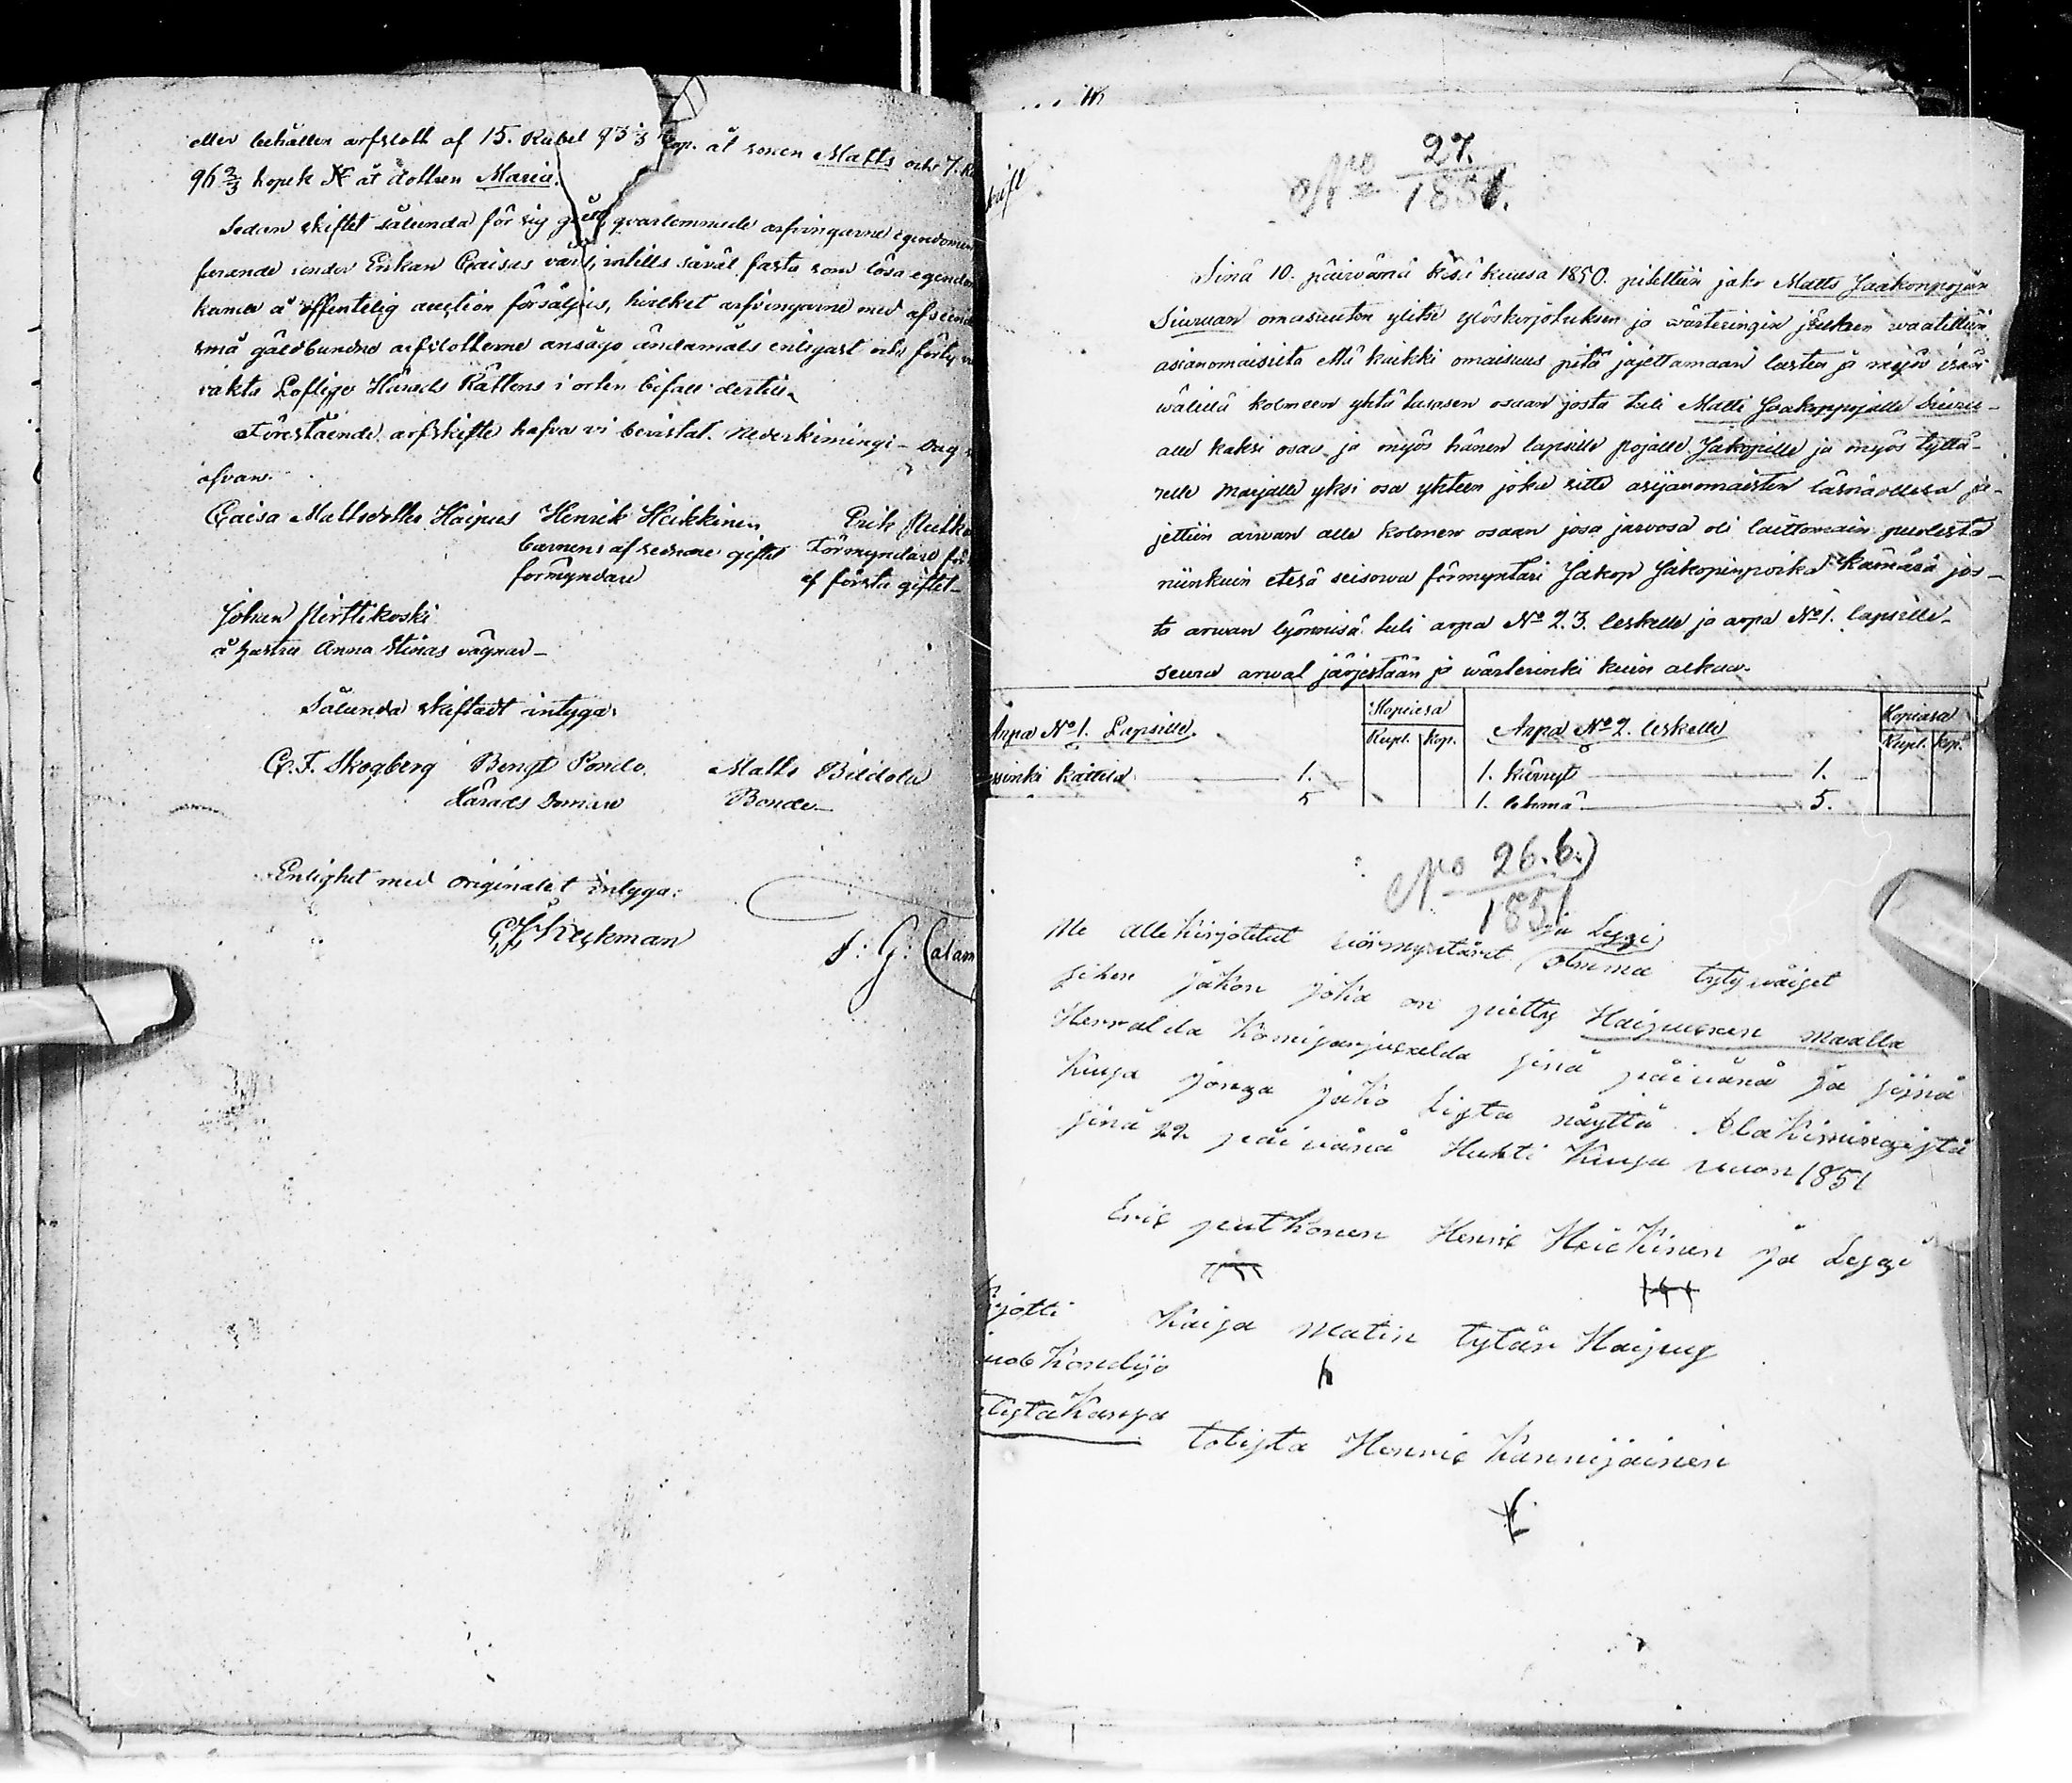 eller behållen arfslott af 15. Rubel 93 1/3 kop. åt sonen Matts och 7. R
96 2/3 kopek Sr åt dottren Maria.
Sedan skiftet sålunda för sig gått, qvarlemnade arfvingarne egendomen
farande under Enkan Caisas vård, intills såväl fasta som lösa egendom
kunde å offentelig auction försäljas, hvilket arfvingarne med afseende
små gäldbundne arfslotterne ansågo ändamåls enligast och förty
vakta Loflige Härads Rättens i orten bifall dertill.
Förestående arfskifte hafva vi bevistat. Nederkimingi - Dag
ofvan.
Caisa Mattsdotter Haipus Henrik Heikkinen Erik Putko
barnens af sednare giftet Förmyndare för
förmyndare af första giftet -
Johan Pirttikoski
å hustru Anna Stinas vägnar -
Sålunda skiftadt intyga:
C. F. Skogberg Bengt Pondo. Matts
Härads Domare Bonde -
Enlighet med originalet intyga:
J: G: Calam
No 27.
1851.
Sinä 10. päivänä kesä kuusa 1850. pidettiin jako Matts Jaakonpojan
Siuruan omasuuton ylitse ylöskirjotuksen ja wärteringin jälken waatettiin
asianomaisilta että kaikki omaisuus pitä jajettamaan lasten ja myös isän
wälillä kolmeen yhtä tasasen osaan josta tuli Matti Jaakoppojalle Siuru-
alle kaksi osaa ja myös hänen lapsille pojalle Jakopille ja myös tyttä-
relle Marjalle yksi osa yhteen joka sitte asijanomaisten läsnäollesa ja-
jettiin arwan alle kolmen osaan josa jaoosa oli laittomain puolesta
niinkuin etesä seisowa förmyntäri Jakop Jakopinpoika Kämärä jos-
ta arwan lyönnisä tuli arpa No 2. 3. leskelle ja arpa No 1. lapsille -
seura arwat järjestään ja wärterinki kuin alkaa.
Arpa No 1. Lapsille. Hopiasa Rupl. Kop. Arpa No 2. leskelle Hopiasa Rupl. Kop.
ssinki kattila 1. 1. kärryt 1.
5 1. lehmä 5.
No 26. b.)
1851
ja Leski
Me allekirjotetut olemma tytyväiset
sihen jakon joka on piettu Haipuksen maalla
Herralda Komisarjukselda sinä päivänä ja sijnä
kuusa jonga jako lista näyttä. Alakimingistä
sinä 22 päivänä Huhti kuusa vuon 1851
Eric putkonen Henric Heickinen ja Leski
kirjotti Kaisa Matin tytär Haipus
todista Henric Kannijainen